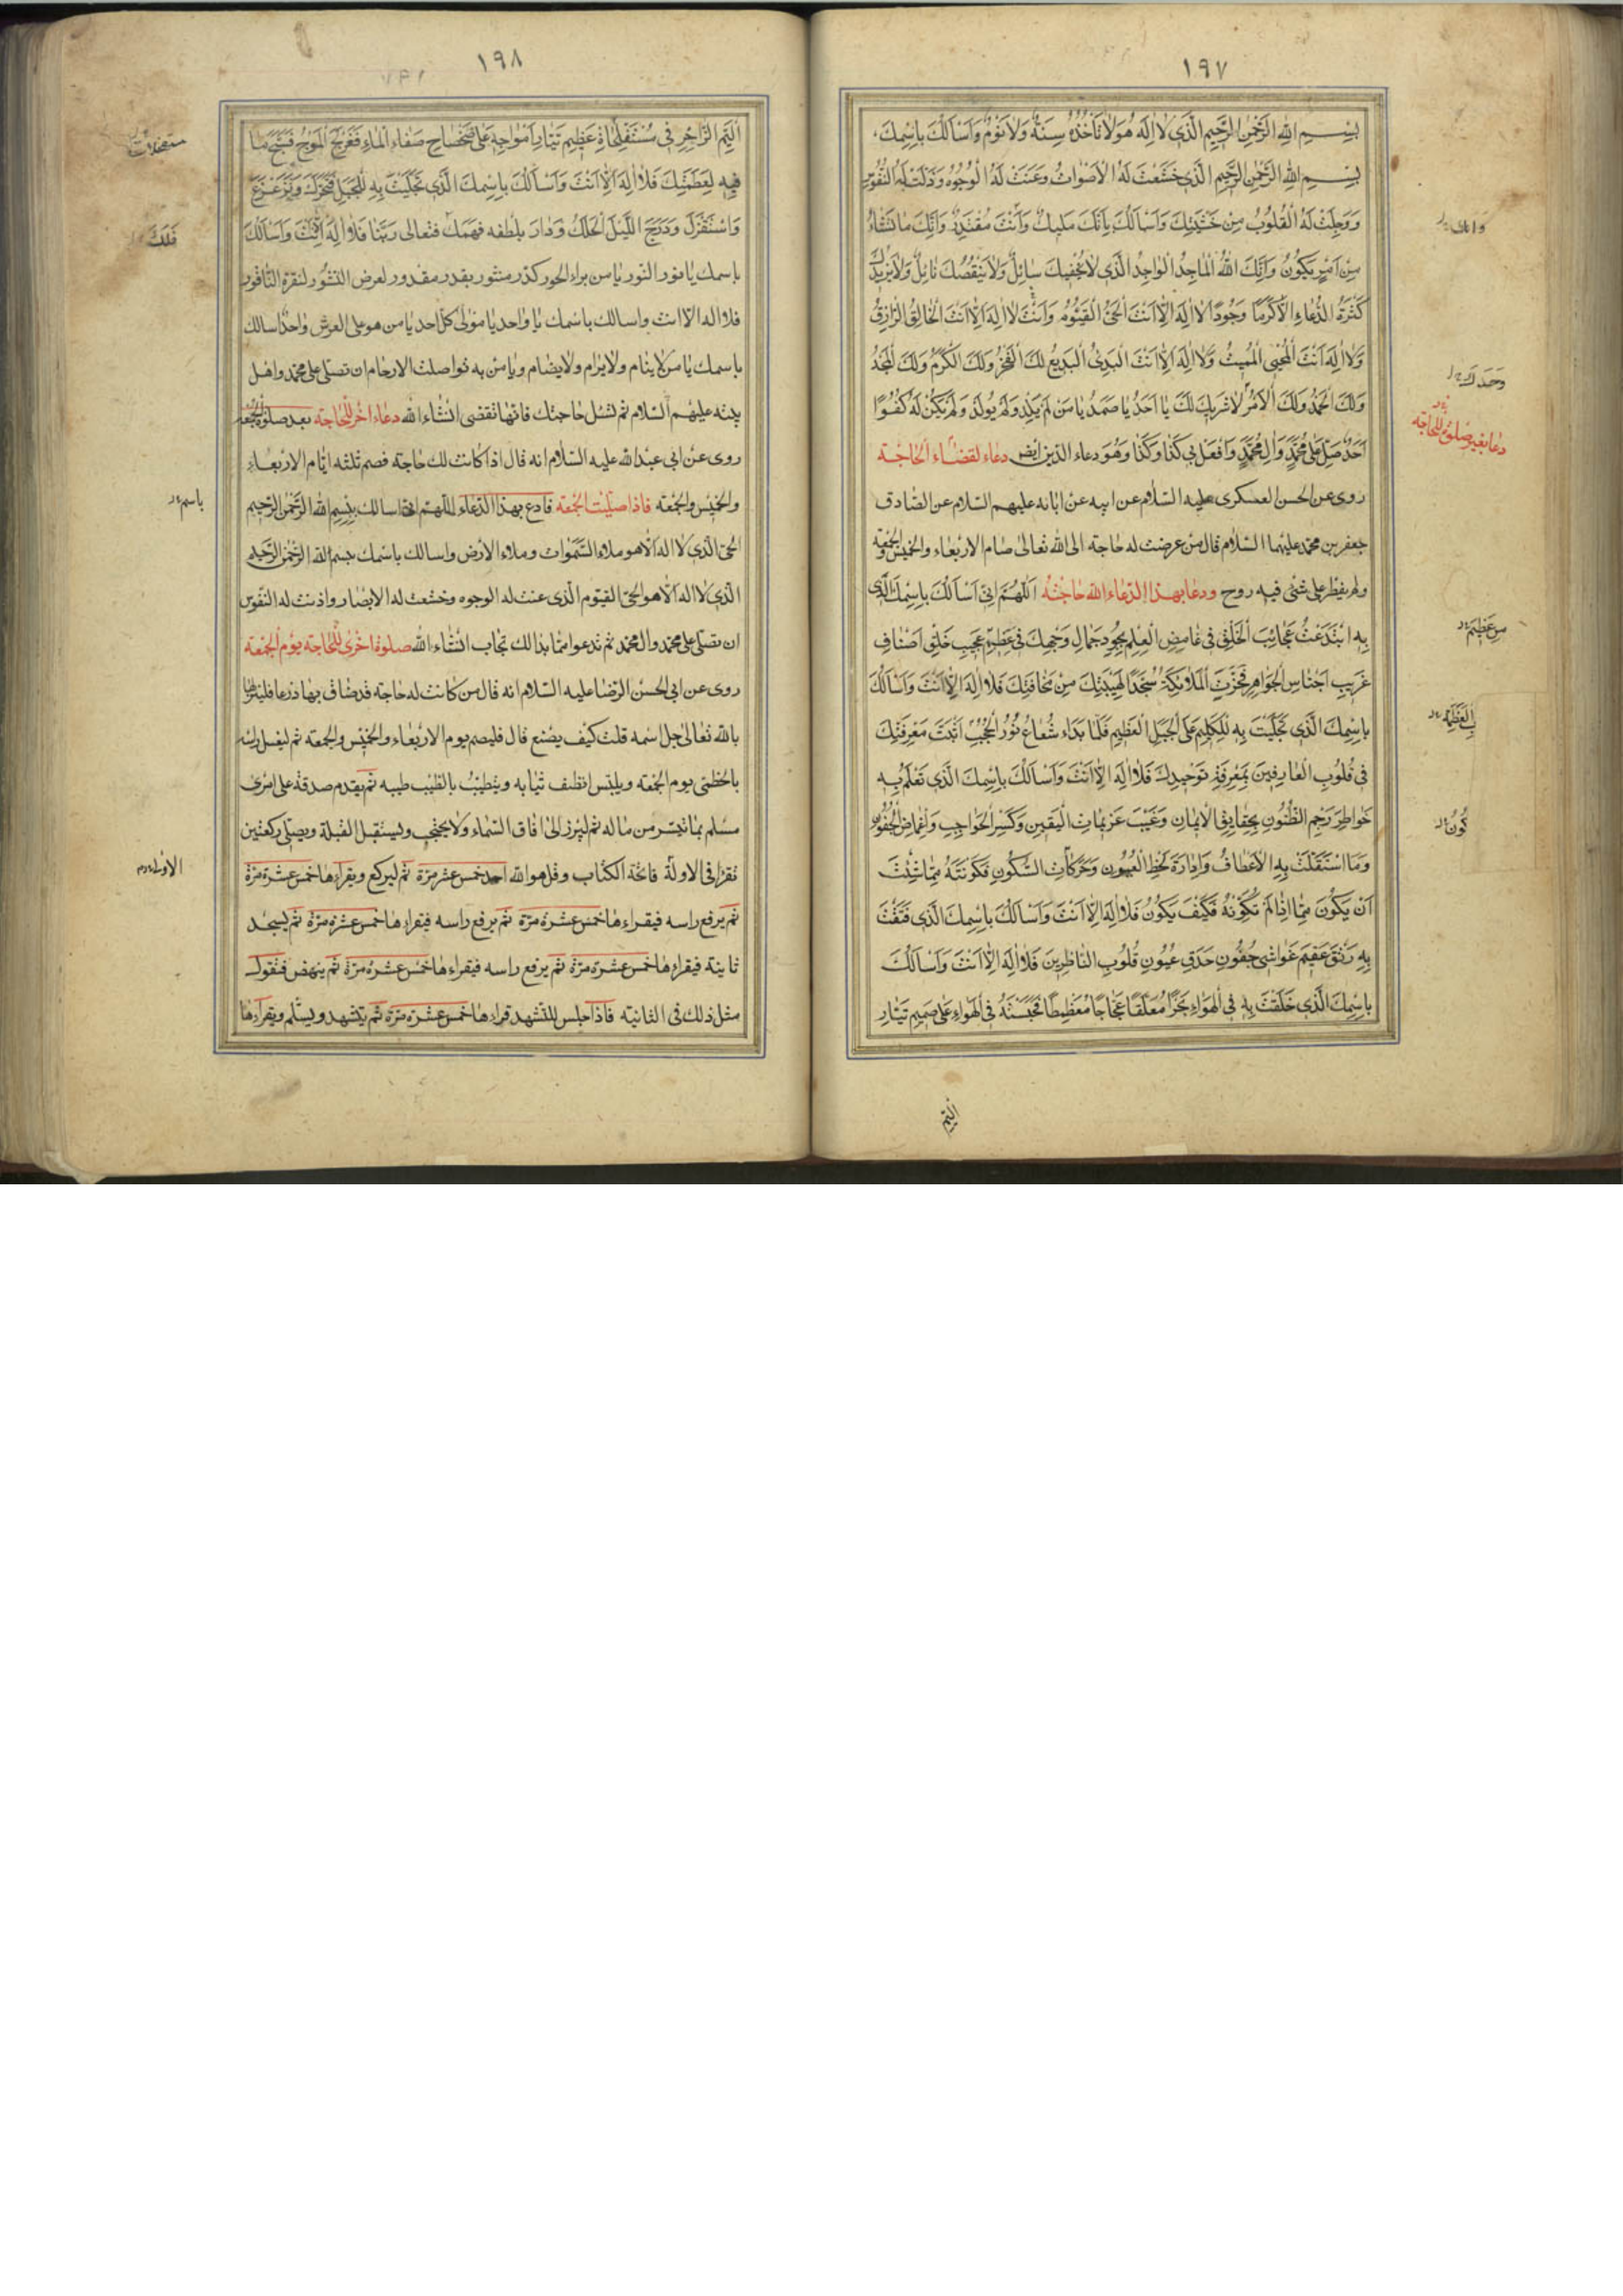 ١٩٧
بِسْمِ اللهِ الرَّحْمٰنِ الرَّحِيمِ الَّذِي لَا إِلَهَ هُوَ لَا تَأْخُذُهُ سِنَةٌ وَلَا نَوْمٌ وَأَسْأَلُكَ بِاسْمِكَ
بِسْمِ اللهِ الرَّحْمٰنِ الرَّحِيمِ الَّذِي خَشَعَتْ لَهُ الْأَصْوَاتُ وَعَنَتْ لَهُ الْوُجُوهُ وَذَلَّتْ لَهُ النُّفُوسُ
وَوَجِلَتْ لَهُ الْقُلُوبُ مِنْ خَشْيَتِكَ وَأَسْأَلُكَ بِأَنَّكَ مَلِيكٌ وَأَنْتَ مُقْتَدِرٌ وَأَنَّكَ مَا تَشَاءُ
مِنْ أَمْرٍ يَكُونُ وَأَنَّكَ اللهُ الْمَاجِدُ الْوَاجِدُ الَّذِي لَا يُحْفِيكَ سَائِلٌ وَلَا يَنْقُصُكَ نَائِلٌ وَلَا يَزِيدُكَ
كَثْرَةُ الدُّعَاءِ إِلَّا كَرَمًا وَجُودًا لَا إِلَهَ إِلَّا أَنْتَ الْحَيُّ الْقَيُّومُ وَأَنْتَ لَا إِلَهَ إِلَّا أَنْتَ الْخَالِقُ الرَّازِقُ
وَلَا إِلَهَ أَنْتَ الْمُحْيِي الْمُمِيتُ وَلَا إِلَهَ إِلَّا أَنْتَ الْبَدِيءُ الْبَدِيعُ لَكَ الْفَخْرُ وَلَكَ الْكَرَمُ وَلَكَ الْمَجْدُ
وَلَكَ الْحَمْدُ وَلَكَ الْأَمْرُ لَا شَرِيكَ لَكَ يَا أَحَدُ يَا صَمَدُ يَا مَنْ لَمْ يَلِدْ وَلَمْ يُولَدْ وَلَمْ يَكُنْ لَهُ كُفُوًا
أَحَدٌ صَلِّ عَلَى مُحَمَّدٍ وَآلِ مُحَمَّدٍ وَافْعَلْ بِي كَذَا وَكَذَا وَهُوَ دعاء الدين ايضا دعاء لقضاء الحاجة
روى عن الحسن العسكرى عليه السلام عن ابيه عن ابائه عليهم السلام عن الصادق
جعفر بن محمد عليهما السلام قال من عرضت له حاجته الى الله تعالى صام الاربعاء والخميس والجمعة
ولم يفطر على شئ فيه روح ودعا بهذا الدعاء الله حاجته اَللّٰهُمَّ إِنِّي أَسْأَلُكَ بِاسْمِكَ الَّذِي
بِهِ ابْتَدَعْتَ عَجَائِبَ الْخَلْقِ فِي غَامِضِ الْعِلْمِ بِجُودِ جَمَالِ وَجْهِكَ فِي عَظِيمِ عَجِيبِ خَلْقِ أَصْنَافِ
غَرِيبِ أَجْنَاسِ الْجَوَاهِرِ فَخَرَّتِ الْمَلَائِكَةُ سُجَّدًا لِهَيْبَتِكَ مِنْ مَخَافَتِكَ فَلَا إِلَهَ إِلَّا أَنْتَ وَأَسْأَلُكَ
بِاسْمِكَ الَّذِي تَجَلَّيْتَ بِهِ لِلْكَلِيمِ عَلَى الْجَبَلِ الْعَظِيمِ فَلَمَّا بَدَاء شُعَاعُ نُورِ الْحُجُبِ أَثْبَتَّ مَعْرِفَتَكَ
فِي قُلُوبِ الْعَارِفِينَ بِمَعْرِفَةِ تَوْحِيدِكَ فَلَا إِلَهَ إِلَّا أَنْتَ وَأَسْأَلُكَ بِاسْمِكَ الَّذِي تَعْلَمُ بِهِ
خَوَاطِرَ رَجْمِ الظُّنُونِ بِحَقَايِقِ الْإِيمَانِ وَغَيْبَ عَزِيمَاتِ الْيَقِينِ وَكَسْرِ الْحَوَاجِبِ وَإِغْمَاضِ الْجُفُونِ
وَمَا اسْتَقَلَّتْ بِهِ الْأَعْطَافُ وَإِدَارَةَ لَحْظِ الْعُيُونِ وَحَرَكَاتِ السُّكُونِ فَكَوَّنْتَهُ مِمَّا شِئْتَ
أَنْ يَكُونَ مِمَّا إِذَا لَمْ تُكَوِّنْهُ فَكَيْفَ يَكُونُ فَلَا إِلَهَ إِلَّا أَنْتَ وَأَسْأَلُكَ بِاسْمِكَ الَّذِي فَتَقْتَ
بِهِ رَتْقَ عَقِيمِ غَوَاشِي جُفُونِ حَدَقِ عُيُونِ قُلُوبِ النَّاظِرِينَ فَلَا إِلَهَ إِلَّا أَنْتَ وَأَسْأَلُكَ
بِاسْمِكَ الَّذِي خَلَقْتَ بِهِ فِي الْهَوَاءِ بَحْرًا مُعَلَّقًا عَجَاجًا مُغَطْمِطًا فَحَبَسْتَهُ فِي الْهَوَاءِ عَلَى صَمِيمِ تَيَّارِ
اليم
وانك
وحدك
دعا بغير صلوة للحاجة
من عظيم
العظمة
كون
١٩٨
الْيَمِّ الزَّاخِرِ فِي مُسْتَفْحِلَاتِ عَظِيمِ تَيَّارِ أَمْوَاجِهِ عَلَى ضَحْضَاحِ صَفَاءِ الْمَاءِ فَعَزَلَجَ الْمَوْجُ فَسَبَّحَ مَا
فِيهِ لِعَظَمَتِكَ فَلَا إِلَهَ إِلَّا أَنْتَ وَأَسْأَلُكَ بِاسْمِكَ الَّذِي تَجَلَّيْتَ بِهِ لِلْجَبَلِ فَتَحَرَّكَ وَتَزَعْزَعَ
وَاسْتَقْزَلَ وَدَرَجَ اللَّيْلَ الْحَلَكَ وَدَارَ بلطفه فهمك فتعالى ربنا فَلَا إِلَهَ إِلَّا أَنْتَ وَأَسْأَلُكَ
باسمك يا نور النور يا من براء الحور كدر منثور بقدر مقدور لعرض النشور لنقرة الناقور
فلا اله الا انت واسالك باسمك يا واحد يا مولى كل احد يا من هو على العرش واحد اسالك
باسمك يا من لا ينام ولا يرام ولا يضام ويا من به تواصلت الارحام ان تصلى على محمد واهل
بيته عليهم السلام ثم تسئل حاجتك فانها تقضى انشاء الله دعاء اخر للحاجة بعد صلوة الجمعة
روى عن ابى عبد الله عليه السلام انه قال اذا كانت لك حاجته فصم ثلثه ايام الاربعاء
والخميس والجمعة فاذا صليت الجمعة فادع بهذا الدعاء اللهم انى اسالك ببسم الله الرحمن الرحيم
الحى الذى لا اله الا هو ملاء السموات وملاء الارض واسالك باسمك بسم الله الرحمن الرحيم
الذى لا اله الا هو الحى القيوم الذى عنت له الوجوه وخشعت له الابصار واذنت له النفوس
ان تصلى على محمد وال محمد ثم تدعوا بما بدالك تجاب انشاء الله صلوة اخرى للحاجة يوم الجمعة
روى عن ابى الحسن الرضا عليه السلام انه قال من كانت له حاجة قد ضاق بها ذرعا فلينزلها
بالله تعالى جل اسمه قلت كيف يصنع قال فليصم يوم الاربعاء والخميس والجمعة ثم ليغسل راسه
بالخطمى يوم الجمعة ويلبس انظف ثيابه ويتطيب بالطيب طيبه ثم يقدم صدقة على امرئ
مسلم بما تيسر من ماله ثم ليبرز الى افاق السماء ولا يحتجب وليستقبل القبلة ويصلى ركعتين
تقرا فى الاولة فاتحة الكتاب وقل هو الله احد خمس عشر مرة ثم ليركع ويقراءها خمس عشرة مرة
ثم يرفع راسه فيقراءها خمس عشرة مرة ثم يرفع راسه فيقراءها خمس عشرة مرة ثم يسجد
ثانية فيقراءها خمس عشرة مرة ثم يرفع راسه فيقراءها خمس عشرة مرة ثم ينهض فتقول
مثل ذلك فى الثانية فاذا جلس للتشهد قراءها خمس عشرة مرة ثم يتشهد ويسلم ويقراءها
فلك
باسم
الاولى